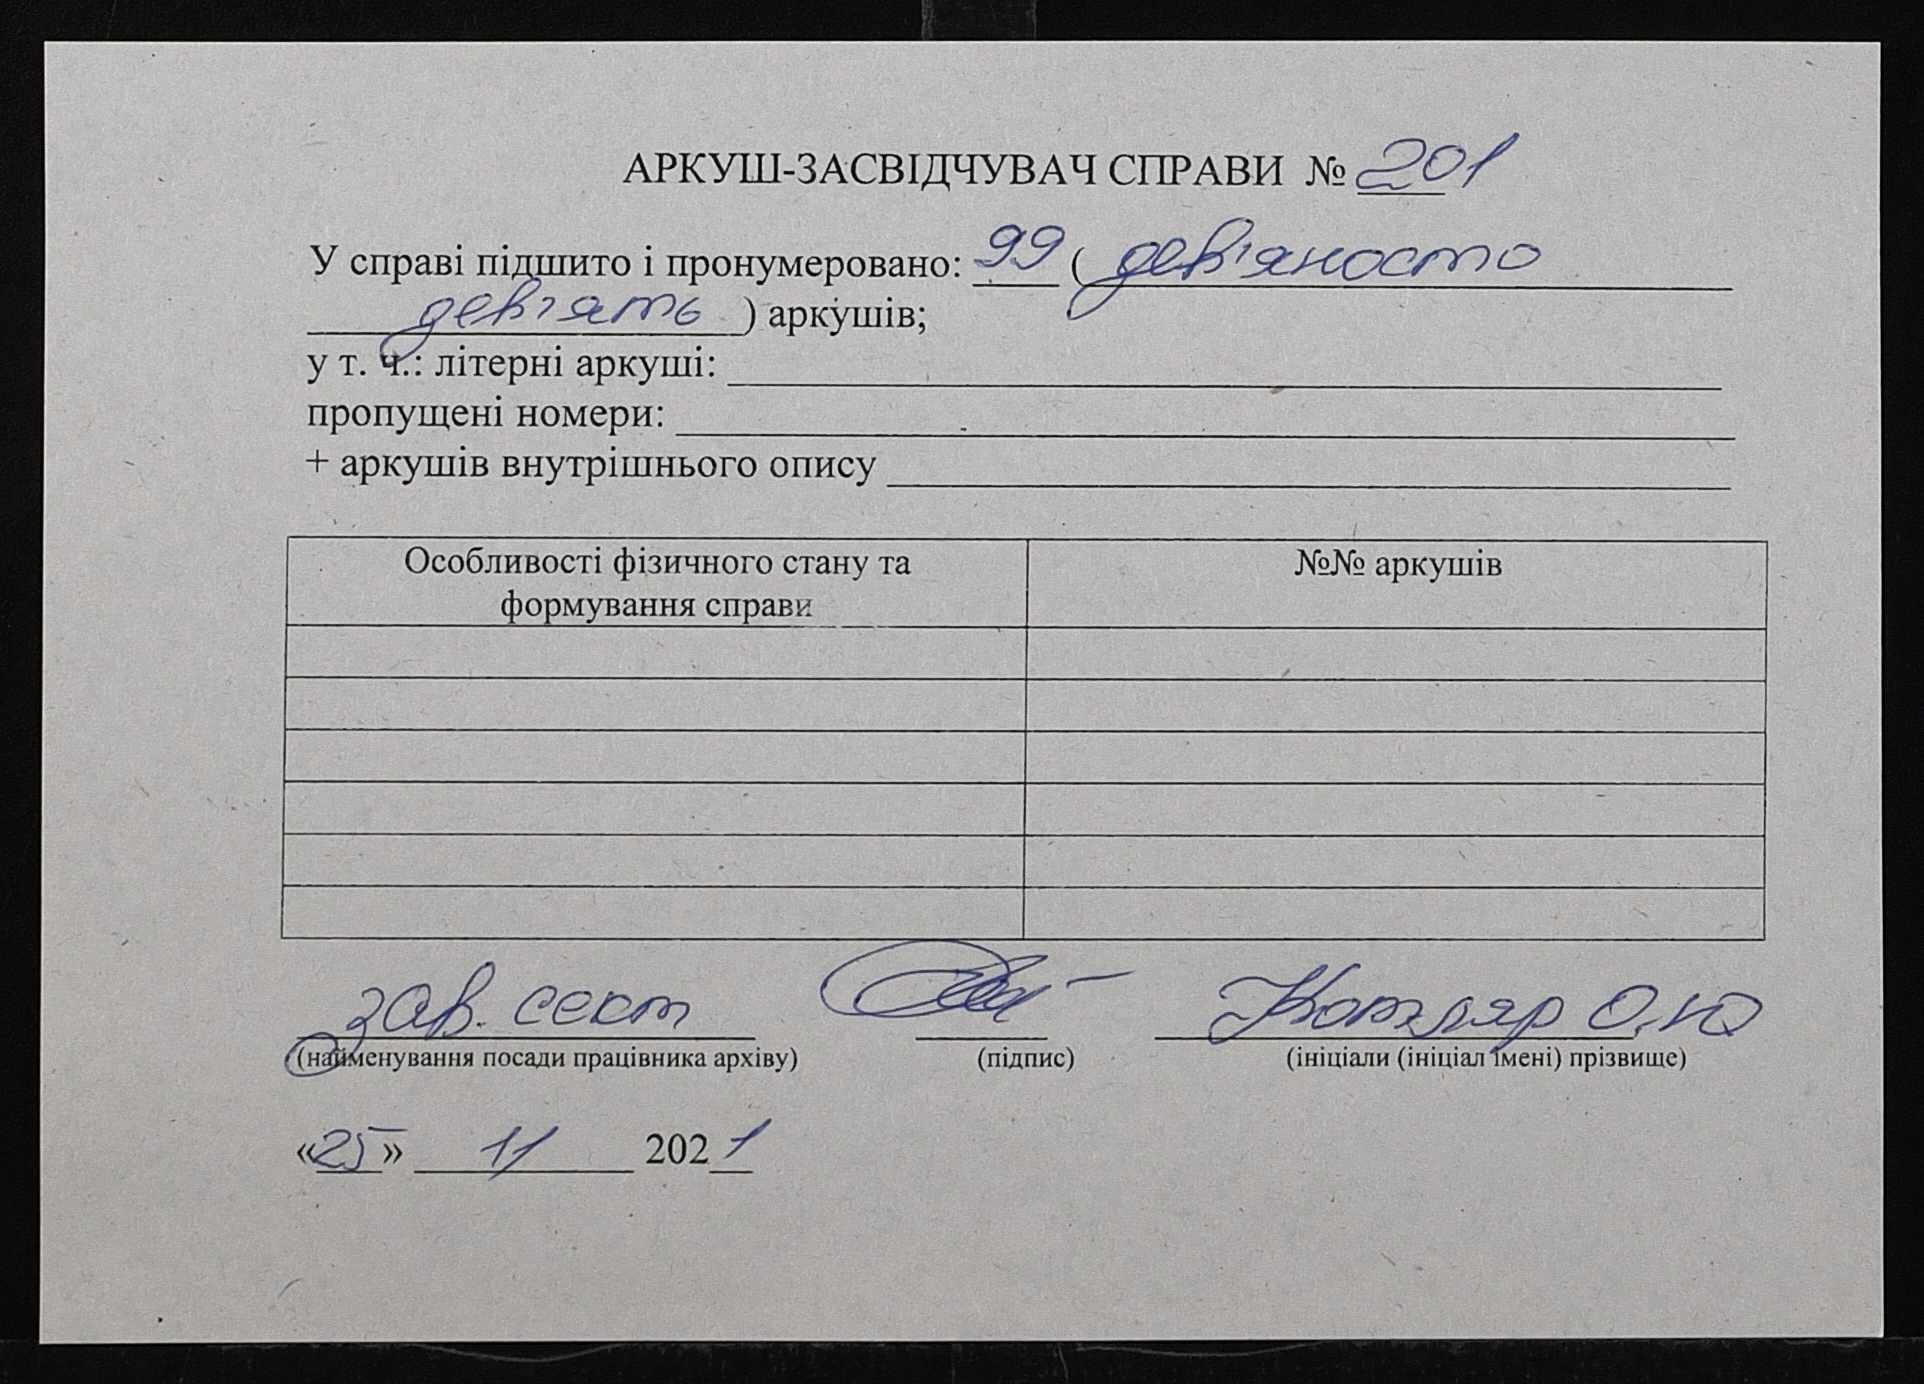 АРКУШ-ЗАСВІДЧУВАЧ СПРАВИ № 201
У справі підшито і пронумеровано: 99 (дев'яносто
дев'ять) аркушів;
у т. ч.: літерні аркуші:
пропущені номери:
+ аркушів внутрішнього опису
Особливості фізичного стану та №№ аркушів
формування справи
зав. сект Котляр О.Ю
(найменування посади працівника архіву) (підпис) (ініціали (ініціал імені) прізвище)
«25» 11 2021